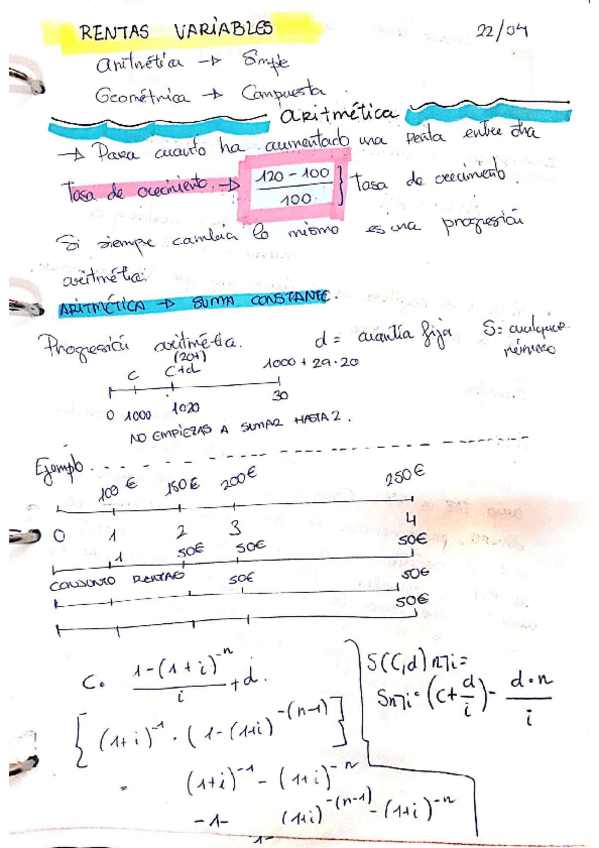 RENTAS VARIABLES 22/04
aritmética → Simple
Geométrica → Compuesta.
aritmética
→ Para cuanto ha aumentado una renta entre otra
Tasa de crecimiento. → 120 - 100 / 100 } Tasa de crecimiento
Si siempre cambia lo mismo es una progresión
aritmética.
ARITMÉTICA → SUMA CONSTANTE.
Progresión aritmética. d = cuantía fija S = cualquier
número
(20+)
C C+d 1000 + 29·20
0 1000 1020 30
NO EMPIEZAS A SUMAR HASTA 2.
Ejemplo.
100 € 150 € 200 € 250 €
0 1 2 3 4
1 50€ 50€ 50€
CONJUNTO RENTAS 50€ 50€
50€
C. 1-(1+i)^-n / i + d.
[ (1+i)^-1 · (1-(1+i)^-(n-1) ]
(1+i)^-1 - (1+i)^-n
-1- (1+i)^-(n-1) - (1+i)^-n
1-
S(C,d) n¬i =
Sn¬i · (C + d/i) - d·n / i